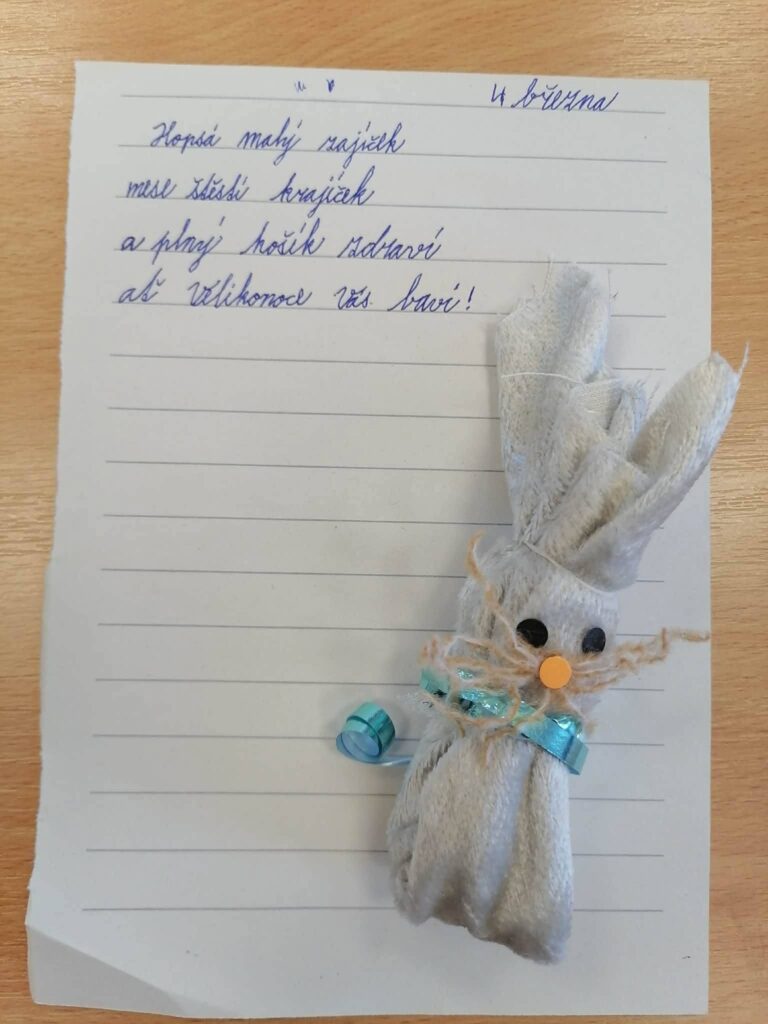 4 března
Hopsá malý zajíček
nese štěstí krajíček
a plný košík zdraví
ať Velikonoce Vás baví!